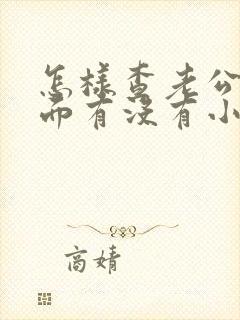 怎样查老公
面有没有小
高婧